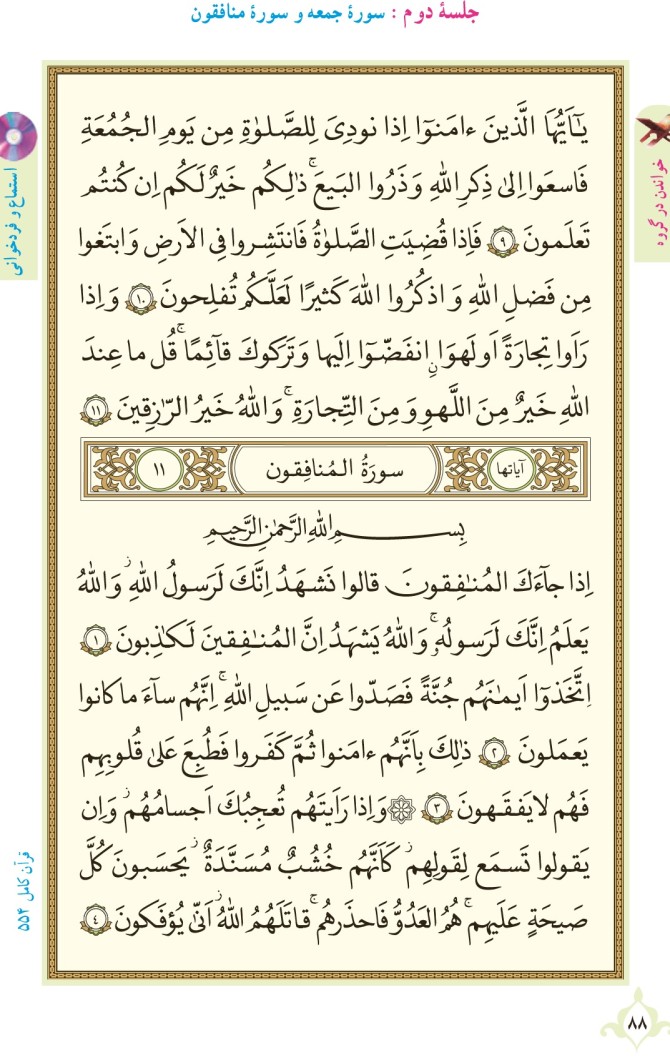 جلسهٔ دوم : سورهٔ جمعه و سورهٔ منافقون
خواندن در گروه
استماع و فردخوانی
يٰٓاَيُّهَا الَّذينَ ءامَنوٓا اِذا نودِىَ لِلصَّلوٰةِ مِن يَومِ الجُمُعَةِ
فَاسعَوا اِلىٰ ذِكرِ اللهِ وَ ذَرُوا البَيعَ ۚ ذٰلِكُم خَيرٌ لَكُم اِن كُنتُم
تَعلَمونَ ﴿٩﴾ فَاِذا قُضِيَتِ الصَّلوٰةُ فَانتَشِروا فِى الاَرضِ وَ ابتَغوا
مِن فَضلِ اللهِ وَ اذكُرُوا اللهَ كَثيرًا لَعَلَّكُم تُفلِحونَ ﴿١٠﴾ وَ اِذا
رَاَوا تِجارَةً اَو لَهوًا ۨانفَضّوٓا اِلَيها وَ تَرَكوكَ قآئِمًا ۚ قُل ما عِندَ
اللهِ خَيرٌ مِنَ اللَّهوِ وَ مِنَ التِّجارَةِ ۚ وَ اللهُ خَيرُ الرّٰزِقينَ ﴿١١﴾
آياتها
سورَةُ المُنافِقون
١١
بِسـمِ اللهِ الرَّحمٰنِ الرَّحيمِ
اِذا جآءَكَ المُنٰفِقونَ قالوا نَشهَدُ اِنَّكَ لَرَسولُ اللهِ ۘ وَ اللهُ
يَعلَمُ اِنَّكَ لَرَسولُهٗ ۚ وَ اللهُ يَشهَدُ اِنَّ المُنٰفِقينَ لَكٰذِبونَ ﴿١﴾
اِتَّخَذوٓا اَيمٰنَهُم جُنَّةً فَصَدّوا عَن سَبيلِ اللهِ ۚ اِنَّهُم سآءَ ما كانوا
يَعمَلونَ ﴿٢﴾ ذٰلِكَ بِاَنَّهُم ءامَنوا ثُمَّ كَفَروا فَطُبِعَ عَلىٰ قُلوبِهِم
فَهُم لا يَفقَهونَ ﴿٣﴾ ۞ وَ اِذا رَاَيتَهُم تُعجِبُكَ اَجسامُهُم ۖ وَ اِن
يَقولوا تَسمَع لِقَولِهِم ۖ كَاَنَّهُم خُشُبٌ مُسَنَّدَةٌ ۖ يَحسَبونَ كُلَّ
صَيحَةٍ عَلَيهِم ۚ هُمُ العَدُوُّ فَاحذَرهُم ۚ قاتَلَهُمُ اللهُ اَنّىٰ يُؤفَكونَ ﴿٤﴾
قرآن کامل ۵۵۴
۸۸